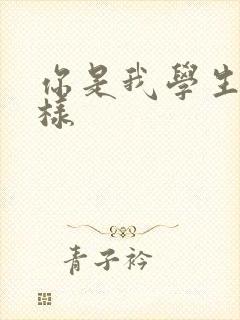 你是我學生
樣
青子衿